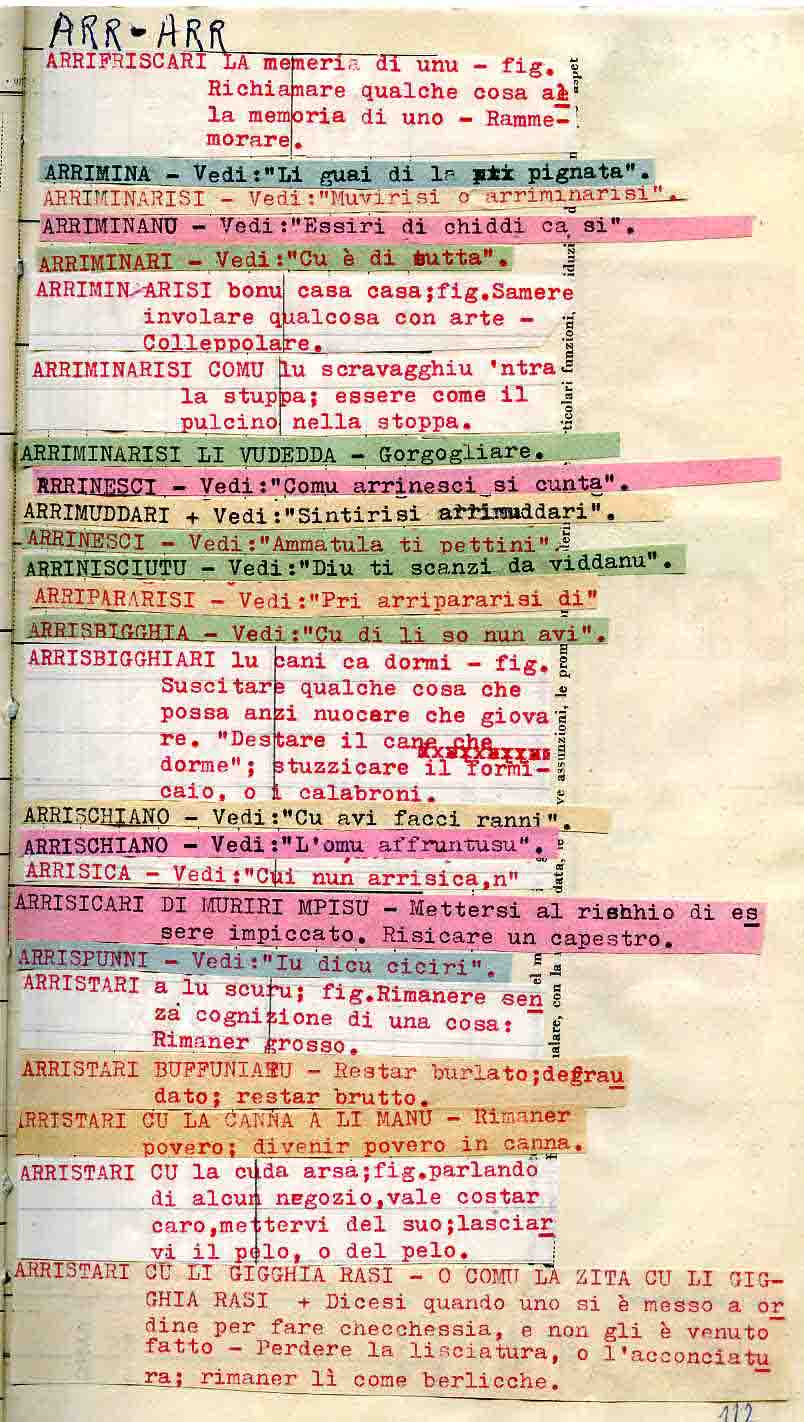 ARR-ARR
ARRIFRISCARI LA memeria di unu - fig.
Richiamare qualche cosa al
la memoria di uno - Ramme-
morare.
ARRIMINA - Vedi:"Li guai di la pignata".
ARRIMINARISI - Vedi:"Muvirisi o arriminarisi".
ARRIMINANU - Vedi:"Essiri di chiddi ca si".
ARRIMINARI - Vedi:"Cu è di sutta".
ARRIMINARISI bonu casa casa;fig.Samere
involare qualcosa con arte -
Colleppolare.
ARRIMINARISI COMU lu scravagghiu 'ntra
la stuppa; essere come il
pulcino nella stoppa.
ARRIMINARISI LI VUDEDDA - Gorgogliare.
ARRINESCI - Vedi:"Comu arrinesci si cunta".
ARRIMUDDARI + Vedi:"Sintirisi arrimuddari".
ARRINESCI - Vedi:"Ammatula ti pettini".
ARRINISCIUTU - Vedi:"Diu ti scanzi da viddanu".
ARRIPARARISI - Vedi:"Pri arripararisi di"
ARRISBIGGHIA - Vedi:"Cu di li so nun avi".
ARRISBIGGHIARI lu cani ca dormi - fig.
Suscitare qualche cosa che
possa anzi nuocere che giova
re. "Destare il cane che
dorme"; stuzzicare il formi-
caio, o i calabroni.
ARRISCHIANO - Vedi:"Cu avi facci ranni".
ARRISCHIANO - Vedi:"L'omu affruntusu".
ARRISICA - Vedi:"Cui nun arrisica,n"
ARRISICARI DI MURIRI MPISU - Mettersi al rischio di es
sere impiccato. Risicare un capestro.
ARRISPUNNI - Vedi:"Iu dicu ciciri".
ARRISTARI a lu scuru; fig.Rimanere sen
za cognizione di una cosa:
Rimaner grosso.
ARRISTARI BUFFUNIATU - Restar burlato;defrau
dato; restar brutto.
ARRISTARI CU LA CANNA A LI MANU - Rimaner
povero; divenir povero in canna.
ARRISTARI CU la cuda arsa;fig.parlando
di alcun negozio,vale costar
caro,mettervi del suo;lasciar
vi il pelo, o del pelo.
ARRISTARI CU LI GIGGHIA RASI - O COMU LA ZITA CU LI GIG-
GHIA RASI + Dicesi quando uno si è messo a or
dine per fare checchessia, e non gli è venuto
fatto - Perdere la lisciatura, o l'acconciatu
ra; rimaner lì come berlicche.
112